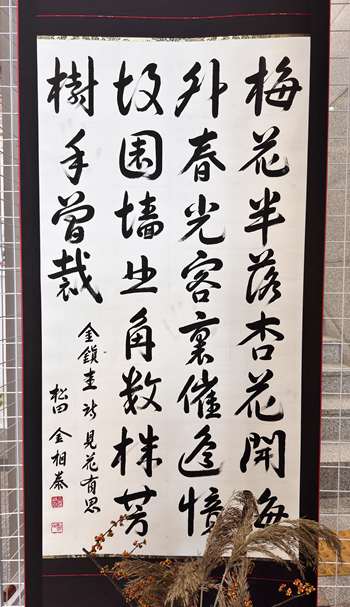 梅花半落杏花開海
外春光客裏催遙憶
故園墻北角数株芳
樹手曾裁
金鎭圭 詩 見花有思
松田 金相泰